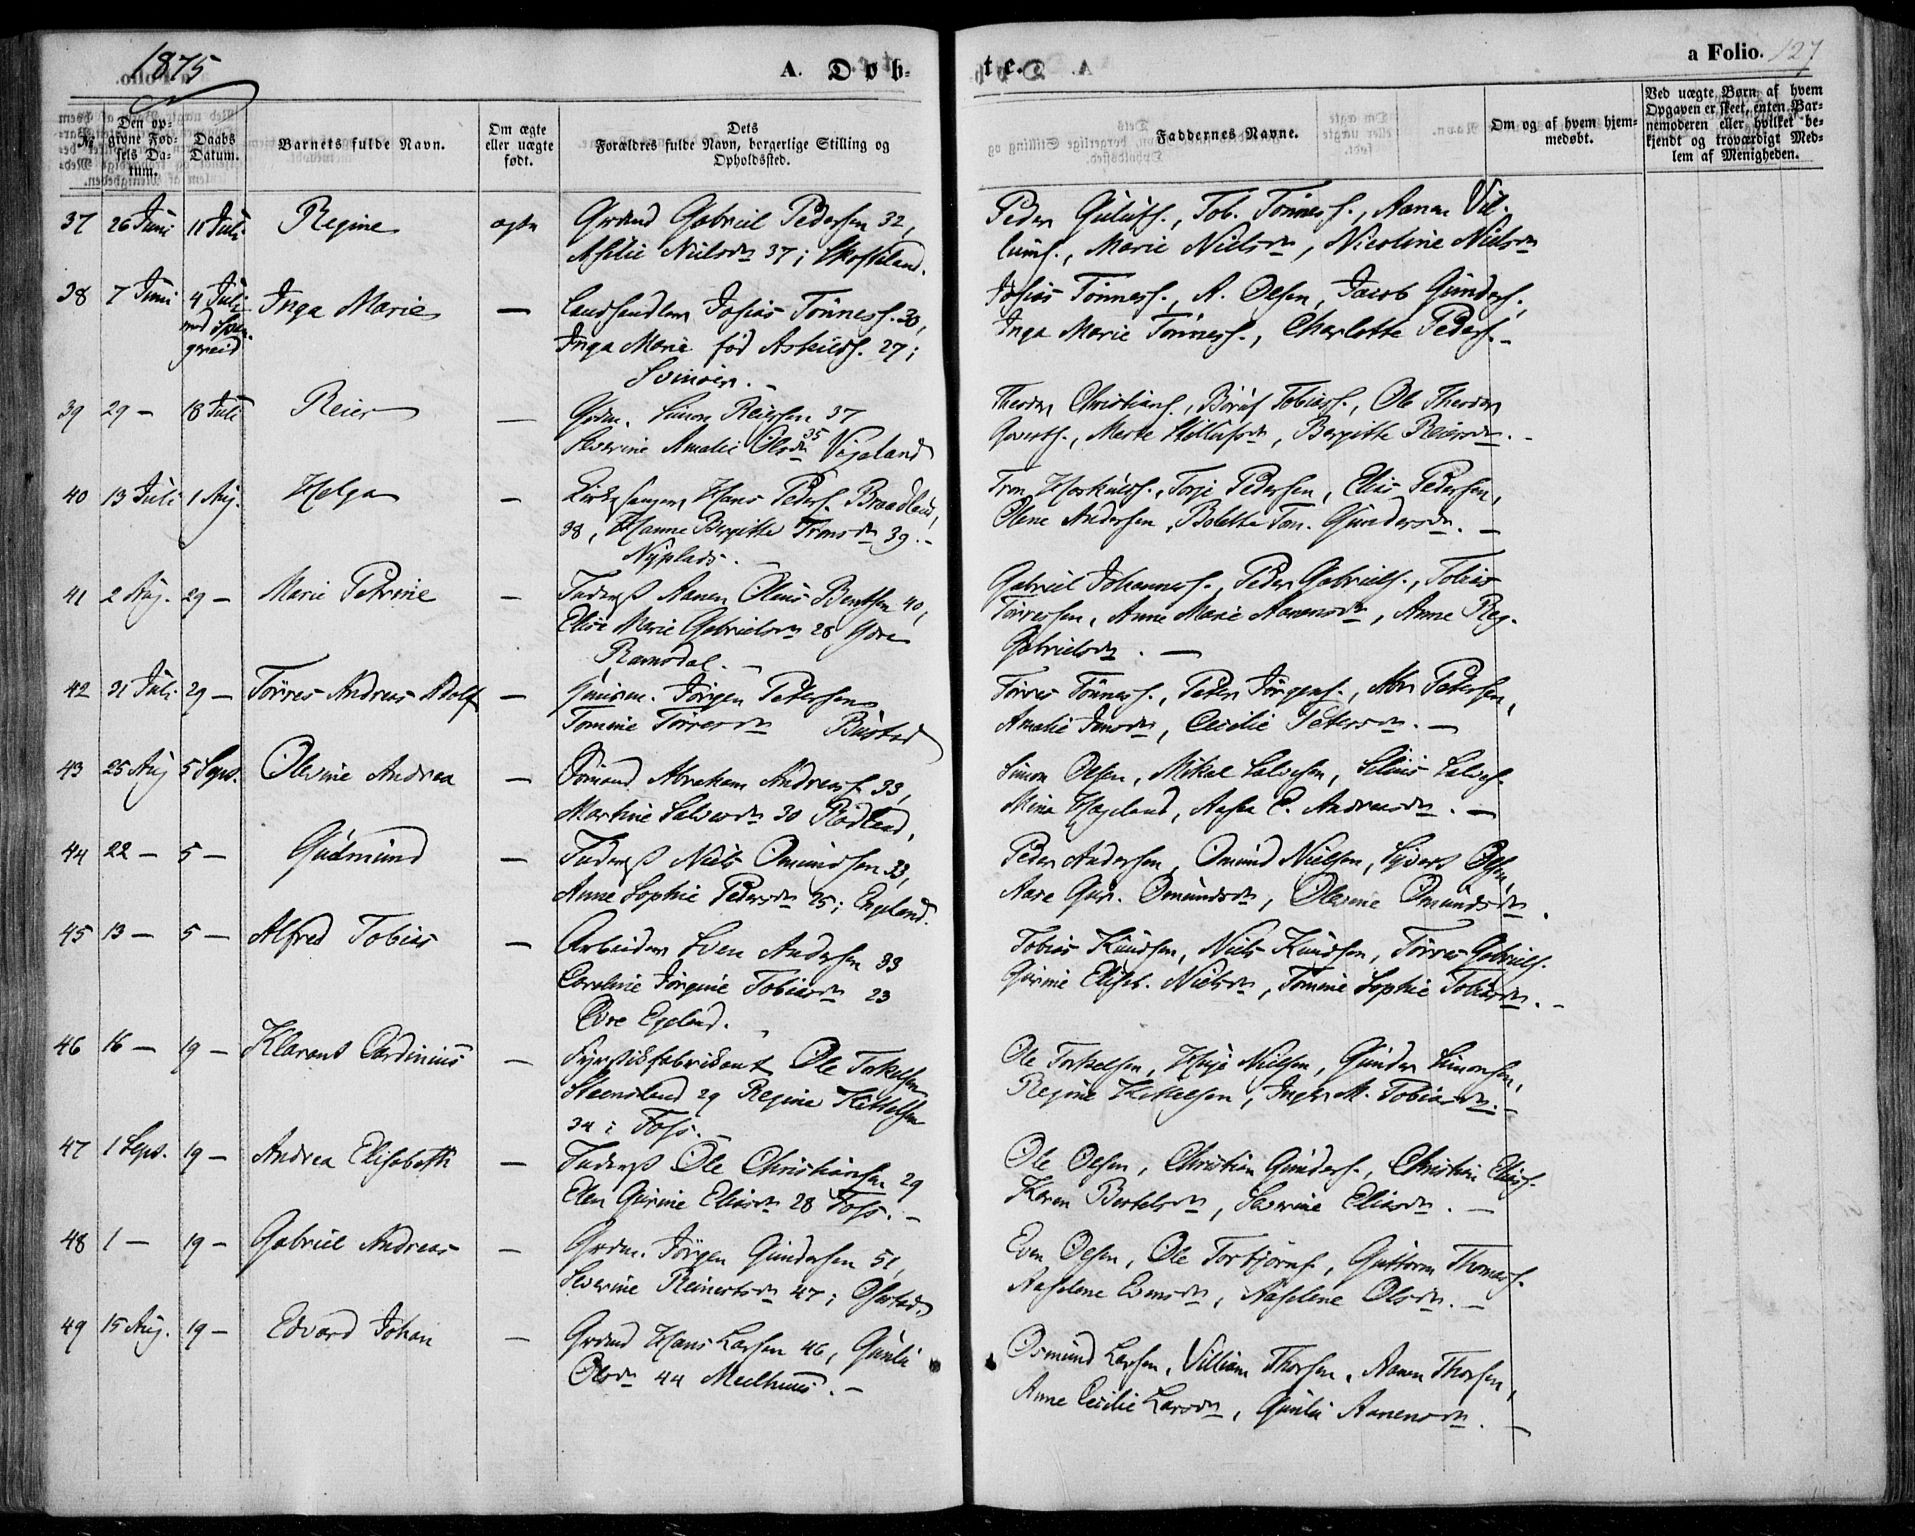 1875
A. Døb-
te.
a Folio. 127
№
Den op-
givne Fød-
sels Da-
tum.
Daabs
Datum.
Barnets fulde Navn.
Om ægte
eller uægte
født.
Dets
Forældres fulde Navn, borgerlige Stilling og
Opholdssted.
Faddernes Navne.
Om og af hvem hjem-
medøbt.
Ved uægte Børn, af hvem
Opgaven er skeet, enten Bar-
nemoderen eller hvilket be-
kjendt og troværdigt Med-
lem af Menigheden.
37 26 Juni 11 Juli Regine ægte Grdmd Gabriel Pedersen 32,
Nielsdn 37 i
Peder Tob. Tønnes., Aanen Vil-
Marie Nielsdn, Nicoline Nielsdn
38 7 Juni 4 Juli Inga Marie — Landhandler Josias Tønness. 30,
med Span-
gereid
Inga Marie fød Askilds. 27 i
Svinøer. —
Josias Tønness., A. Olsen, Jacob Gunders.,
Inga Marie Tønness., Charlotte Peders. —
39 29 — 18 Juli Reier — Grdm. Simon Reiersen 37
Severine Amalie Olsdn 35 Vigeland
Theodor Christians., Tobiass., Ole Theodor
Bergitte Reiersdn. —
40 13 Juli 1 Aug. Helga — Kirkesanger Hans Peders. Braadland,
38, Hanne Bergitte Tronsdn 39. —
Nyplads. —
Tron Torje Pedersen, Elias Pedersen,
Olene Andersen, Bolette Ton. Gundersdn. —
41 2 Aug. 29 — Marie Petrine — Inderst Aanen Olaus Bentsen 40,
Elise Marie Gabrielsdn 28 Øvre
Ramsdal. —
Gabriel Johanness., Peder Gabriels., Tobias
Tørressen, Anne Marie Aanensdn, Anne Reg.
Gabrielsdn. —
42 31 Juli 29 — Tørres Andreas Adolf — Jørgen Petersen
Tomine Tørresdn Bustad
Tørres Tønness., Peder Jørgens., Abr. Petersen,
Amalie Jensdn, Cecilie Petersdn. —
43 25 Aug 5 Sept. Olevine Andrea — Sømand Abraham Andreass. 33,
Martine Salvesdn 30 Rødland,
Simon Olsen, Mikal Salvesen, Salves.
Mine Hageland, Aasta E. Andreasdn. —
44 22 — 5 — Gudmund — Inderst Niels Omundsen 33,
Anne Sophie Pedersdn 25 i Egeland.
Peder Andersen, Omund Nielsen, Sivert Olsen,
Aase Gur. Omundsdn, Olevine Omundsdn.
45 13 — 5 — Alfred Tobias — Arbeider Sven Andersen 33
Caroline Jørgine Tobiasdn 23
Øvre Egeland. —
Tobias Knudsen, Niels Knudsen, Tørres Gabriels.
Gurine Elisab. Nielsdn, Tomine Sophie Tobiasdn. —
46 16 — 19 — Klarant Cardinius — Fyrstikfabrikant Ole Torkelsen
Steensland 29 Regine Kittelsen
34 i Foss. —
Ole Torkelsen, Nielsen, Gunder Simonsen,
Regine Kittelsen, Inger M. Tobiasdn. —
47 1 Sept. 19 — Andrea Elisabeth — Inderst Ole Christiansen 29
Elen Gurine Eliasdn 28 Foss. —
Ole Olsen, Christian Gunders., Christian Eliass.
Karen Bertelsdn, Severine Eliasdn. —
48 1 — 19 — Gabriel Andreas — Grdm. Jørgen Gundersen 51,
Severine Reinertsdn 47 i
Even Olsen, Ole Torbjørns., Guttorm Thomass.
Aaselene Evensdn, Aaselene Olsdn. —
49 15 Aug. 19 — Edvard Johan — Grdmd Hans Larsen 46, Gunle
Olsdn 44 Meelhuus. —
Osmund Larsen, Villiam Thorsen, Aanen Thorsen,
Anne Cecilie Larsdn, Gunle Aanensdn. —